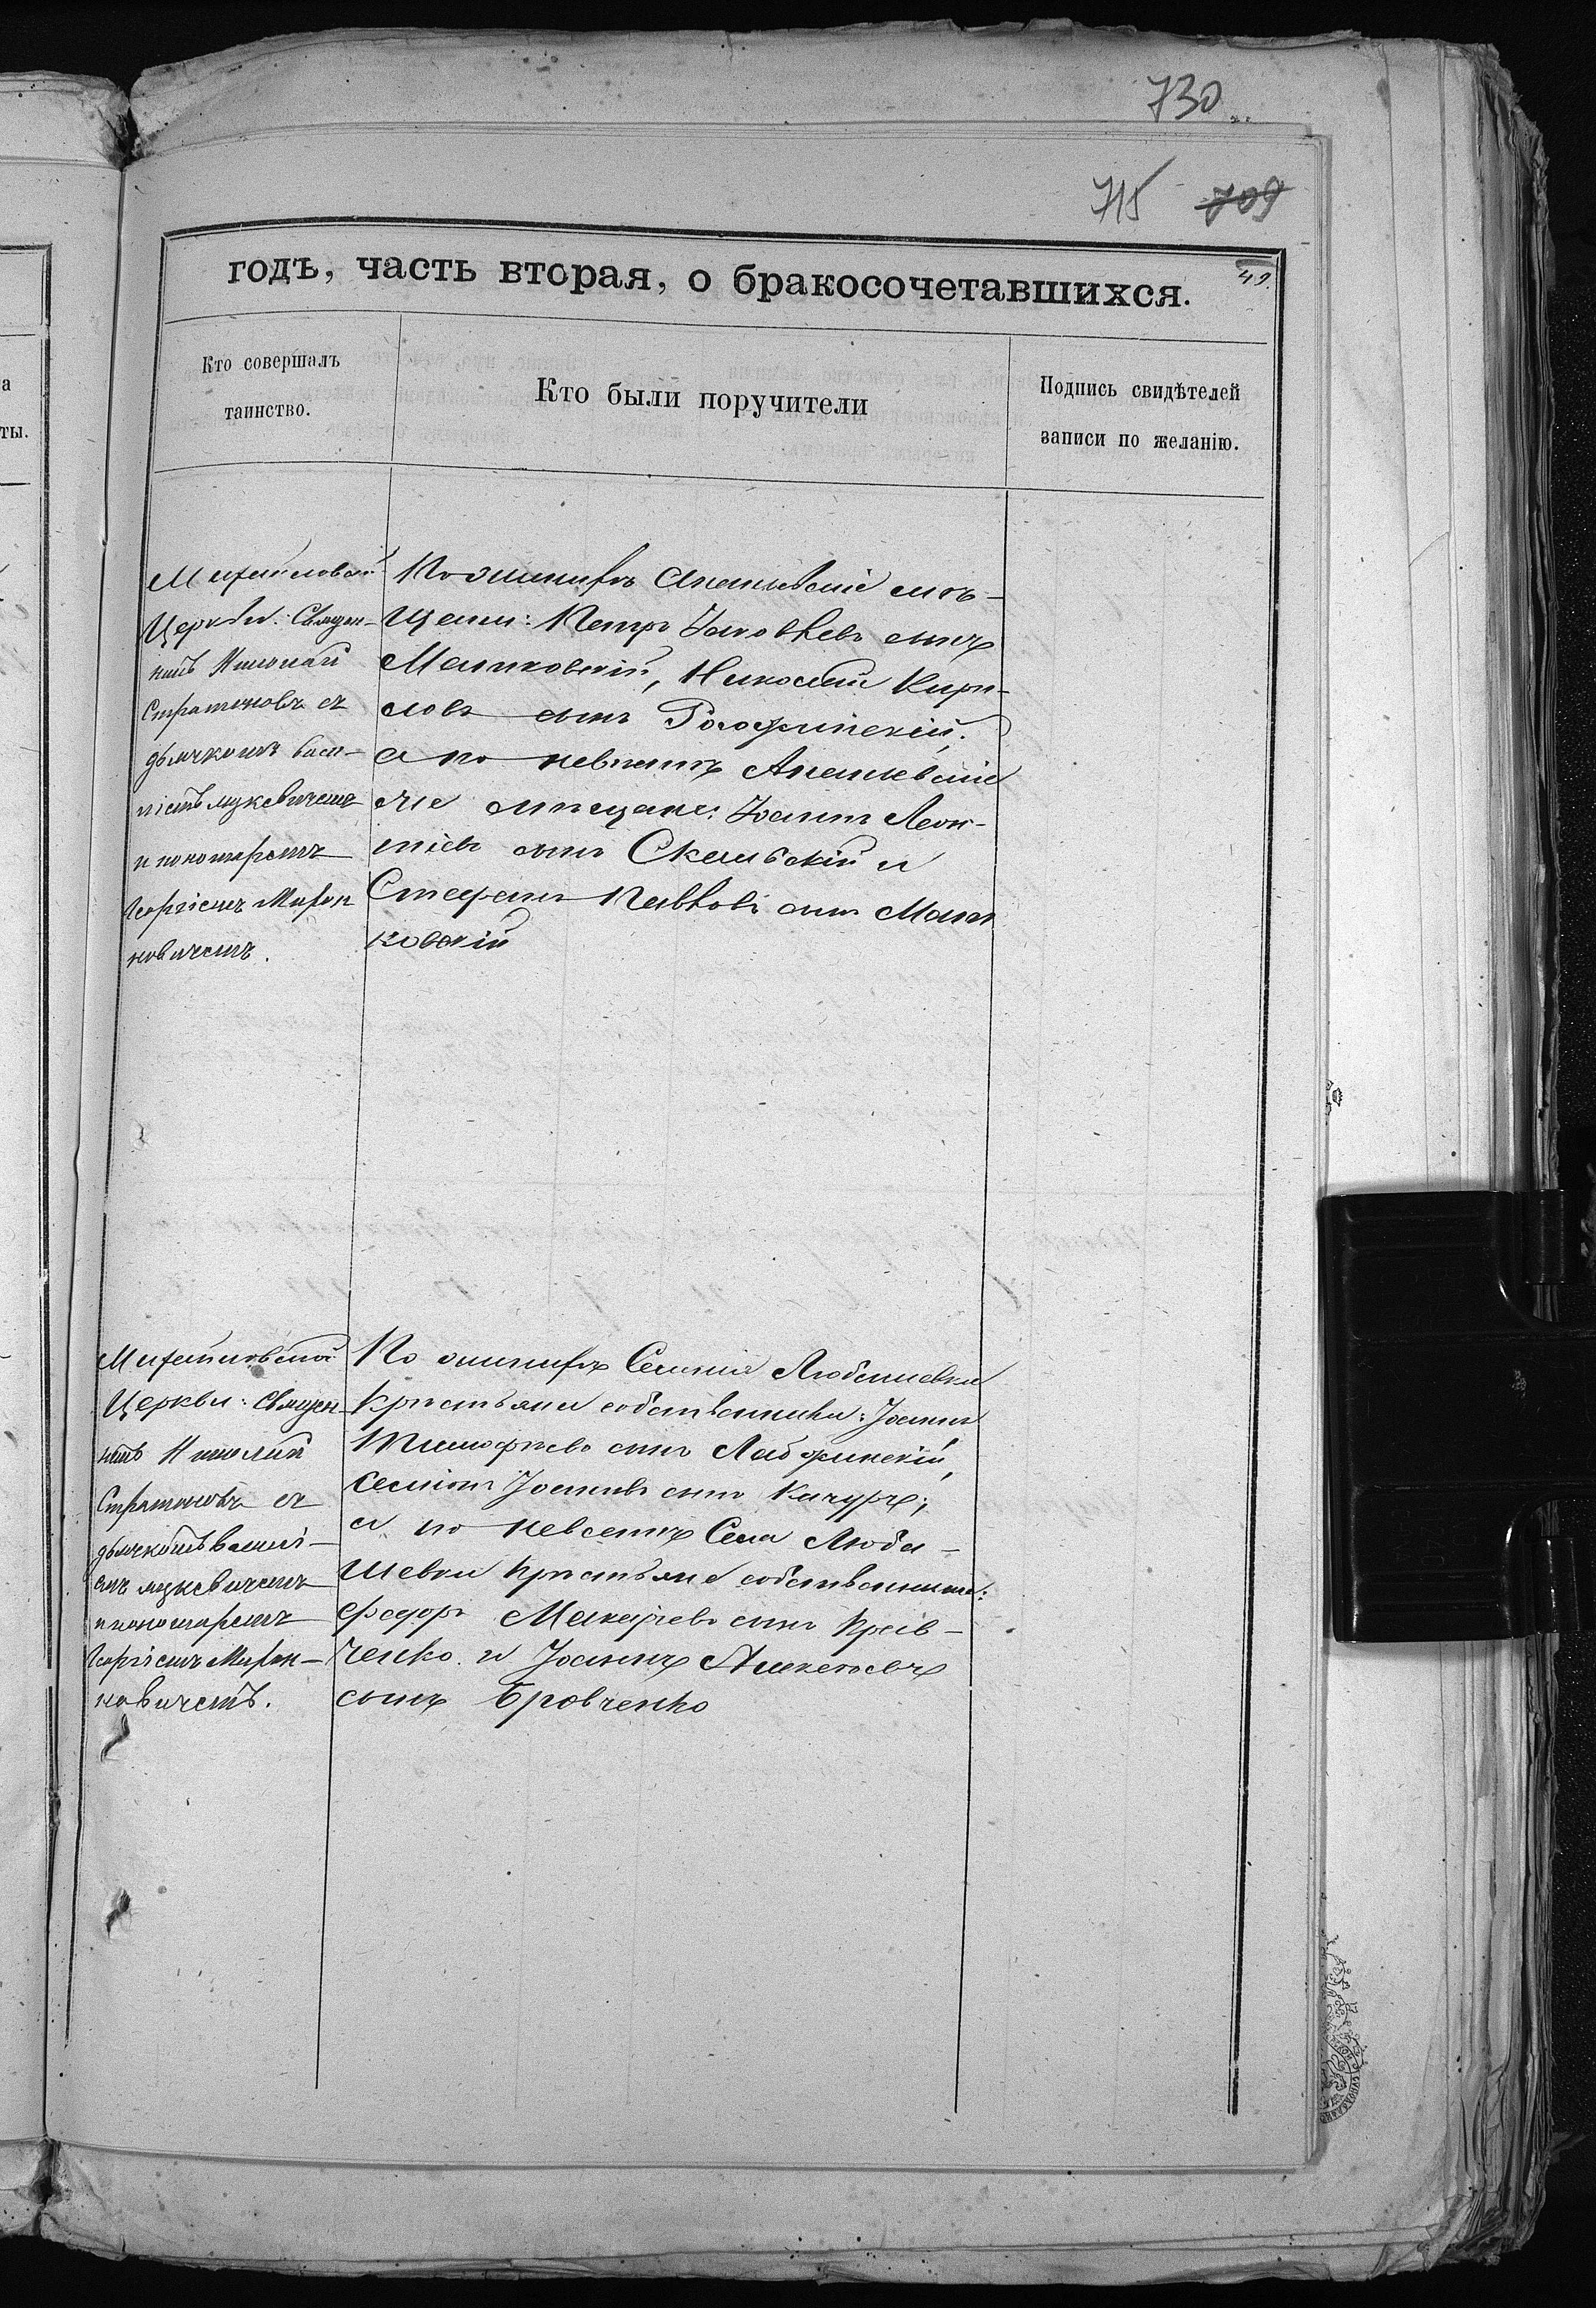 730
715 709
годъ, часть вторая, о бракосочетавшихся.
49.
Кто совершалъ
таинство.
Кто были поручители
Подпись свидѣтелей
записи по желанію.
а
ты.
Михайловской
Церкви: Священ-
никъ Николай
Стратоновъ съ
дьячкомъ Васи-
ліемъ Мцкевичемъ
и пономаремъ
Георгіемъ Мирон
новичемъ.
По жениху Ананьевскіе мѣ-
щани: Петръ Іаковлевъ сынъ
Маликовскій, Николай Кири-
ловъ сынъ
а по невѣстѣ Ананьевскіе
же мѣщане: Іоаннъ Леон-
тіевъ сынъ Скальскій и
Стефанъ Павловъ сынъ Мали
ковскій
Михайловской
Церкви: Священ-
никъ Николай
Стратоновъ съ
дьячкомъ Василі-
емъ Мцкевичемъ
и пономаремъ
Георгіемъ Мирон-
новичемъ.
По жениху Селенія Любашевки
Крестьяне собственники: Іоаннъ
Тимофѣевъ сынъ
Семіонъ Іоанновъ сынъ Качуръ;
а по невѣстѣ Села Люба-
шевки Крестьяне собственники:
Федоръ Макаріевъ сынъ Крав-
ченко и Іоаннъ Алексѣевъ
сынъ Бровченко